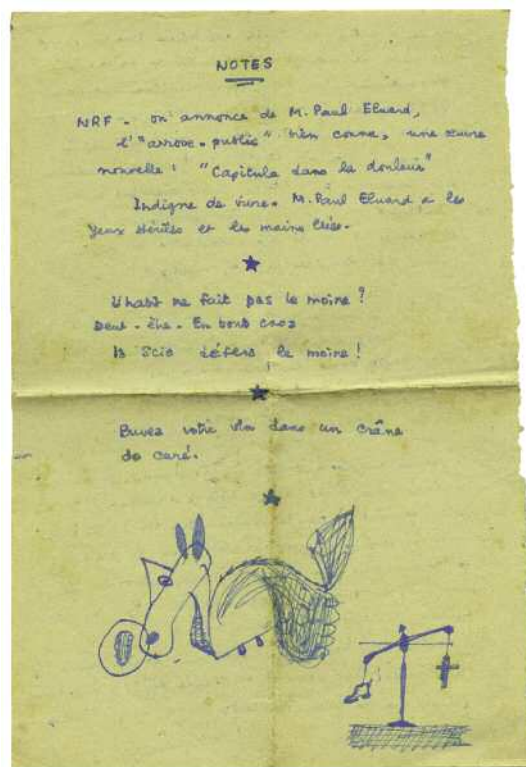 NOTES
NRF - on annonce de M. Paul Eluard,
l'"arrose-public" bien connu, une œuvre
nouvelle : "Capitula dans la douleur"
Indigne de vivre. M. Paul Eluard a les
yeux stériles et les mains liées.
L'habit ne fait pas le moine ?
Peut-être. En tout cas
la défend le moine !
Buvez votre vin dans un crâne
de curé.